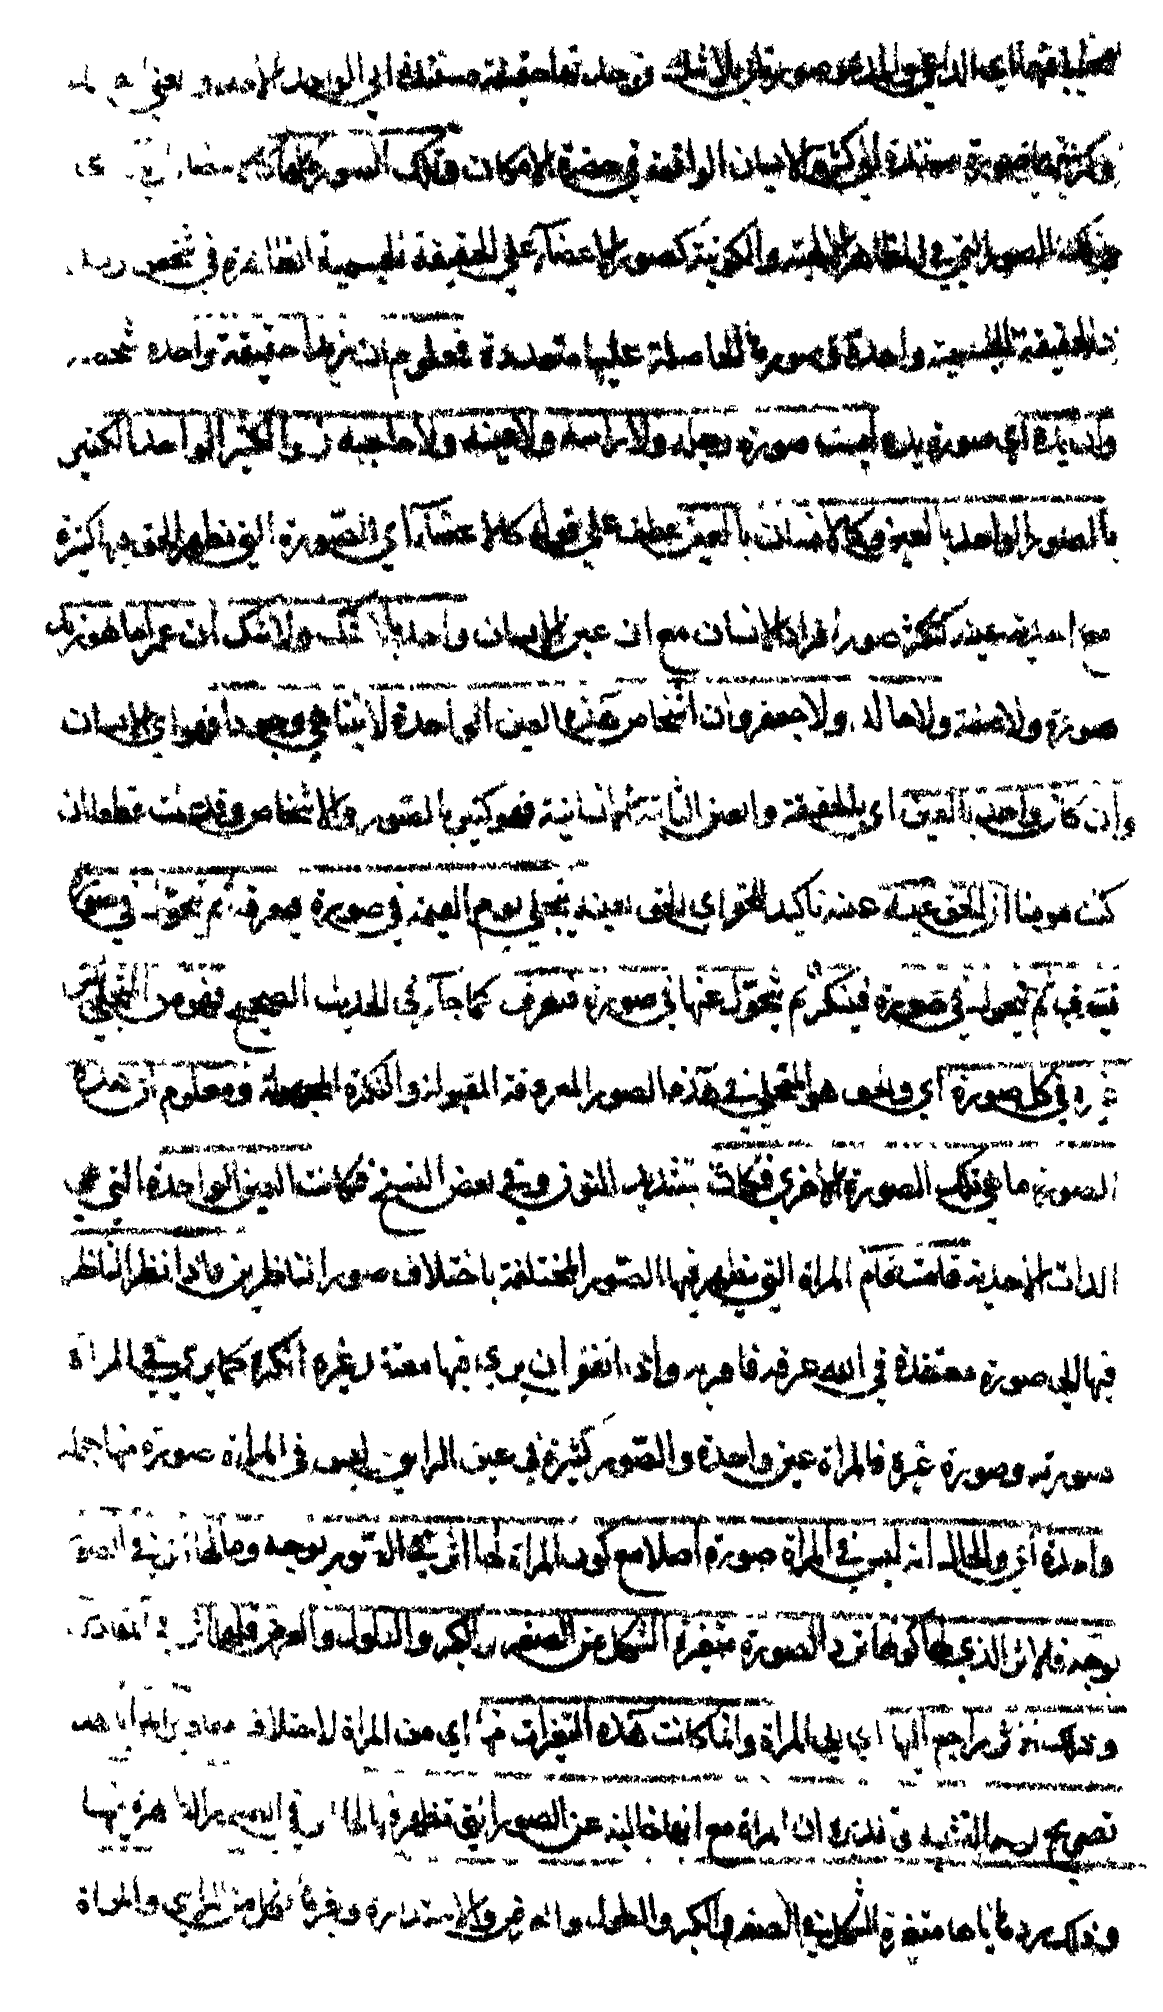 فيها اي الداعي والمدعو صورتان بلا شك وحدتها حقيقة مستندة الى الواحد الاحد
وكثرتهما صورة مستندة الى كثرة الاعيان الواقعة في حضرة الامكان وتلك الصورة كلها كالاعضاء
وتلك الصور التي في المظاهر الالهية والكونية كصور الاعضاء على الحقيقة الجسمية الظاهرة في شخص زيد
الحقيقة الجسمية واحدة وصورها الفاصلة عليها متعددة فمعلوم ان زيدا حقيقة واحدة شخصية
وان يده اي صورة يده ليست صورة رجله ولا راسه ولا عينه ولا حاجبه فهو الكثير الواحد الكثير
بالصور الواحد بالعين وكالانسان بالعين عطف على قوله كالاعضاء اي الصورة التي تظهر الحق فيها كثرة
مع احدية عينه كتكثر صور افراد الانسان مع ان عين الانسان واحد بلا شك ولا شك ان عمرا ما هو زيد
صورة ولا صفة ولا حالة ولا جعفر وان اشخاص هذه العين الواحدة لا يتناهى وجودا فهو اي الانسان
وان كان واحد بالعين اي بالحقيقة والعين الثابتة الانسانية فهو كثير بالصور والاشخاص وقد علمت قطعا ان
كنت مومنا ان الحق عينه عينه تاكيد للحق اي الحق بعينه يتجلى يوم القيمة في صورة فيعرف ثم يتحول في صورة
فيه ثم يتحول في صورة فينكر ثم يتحول عنها في صورة فيعرف كما جاء في الحديث الصحيح فهو هو المتجلي ليس
غيره في كل صورة اي والحق هو المتجلي في هذه الصور المعروفة المقبولة والنكرة المجهولة ومعلوم ان هذه
الصورة ما هي تلك الصورة الاخرى فكان بتشديد النون وفي بعض النسخ فكانت العين الواحدة التي هي
الذات الاحدية قامت مقام المراة التي يظهر فيها الصور المختلفة باختلاف صور الناظرين فاذا نظر الناظر
فيها الى صورة معتقده في الله عرفه فاقر به واذا اتفق ان يرى فيها معتقد غيره انكره كما يرى في المراة
صورته وصورة غيره فالمراة عين واحدة والصور كثيرة في عين الرائي وليس في المراة صورة منها جملة
واحدة اي والحال انه ليس في المراة صورة اصلا مع كون المراة لها اثر في الصور بوجه وما لها اثر في الصورة
بوجه فالاثر الذي لها كونها ترد الصورة متغيرة الشكل من الصغر والكبر والطول والعرض فلها اثر في المقادير
وذلك راجع اليها اي الى المراة وانما كانت هذه التغيرات منها اي من المراة لاختلاف مقادير المرايا هذا
تصريح لوجه التشبيه وتقديره ان المراة مع انها خالية عن الصور التي تظهر فيها لها اثر في الصور الظاهرة فيها
وذلك بردها اياها متغيرة الشكل في الصغر والكبر والطول والعرض والاستدارة وغيرها فكل من الرائي والمراة